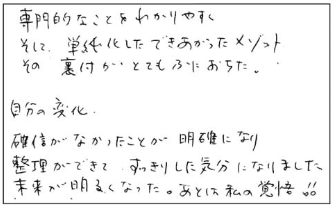 専門的なことをわかりやすく
そして、単純化したできあがったメソット
その裏付がとてもふにおちた。
自分の変化
確信がなかったことが明確になり
整理ができて、すっきりした気分になりました
未来が明るくなった。あとは私の覚悟!!